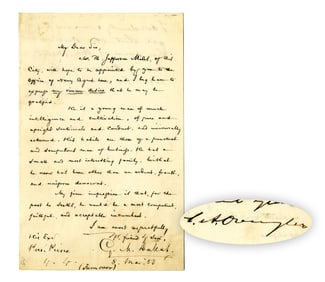 My Dear Sir,
Mr. M. Jefferson Milot, of this
City, will hope to be appointed by you to the
office of Navy Agent here, and I beg leave to
express my sincere desire that he may be
gratified.
He is a young man of much
intelligence and cultivation, of pure and
upright sentiments and conduct, and universally
esteemed. His habits are those of a practical
and competent man of business. He has a
small and most interesting family. Withal
he never has been other than an ardent,
and uniform democrat.
My firm impression is that, for the
post he seeks, he would be a most competent,
faithful, and acceptable incumbent.
I am most respectfully,
Yr friend &
G. M. Dallas
His Exc.
Pres. Pierce
8. Mar. 53
(Turnover)